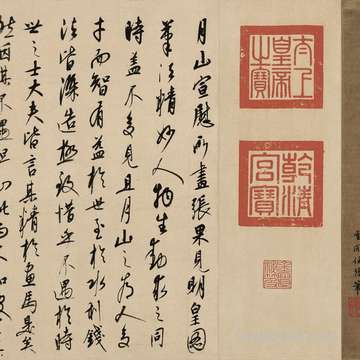 太上皇帝之寶
乾清宮寶
月山宣慰所畫張果見明皇圖
筆法精妙人物生動求之同
時蓋不多見且月山之為人多
才而智有益於世至於水利錢
法皆深造極致惜乎不遇於時
世之士大夫皆言其精於畫馬是矣
因其不遇